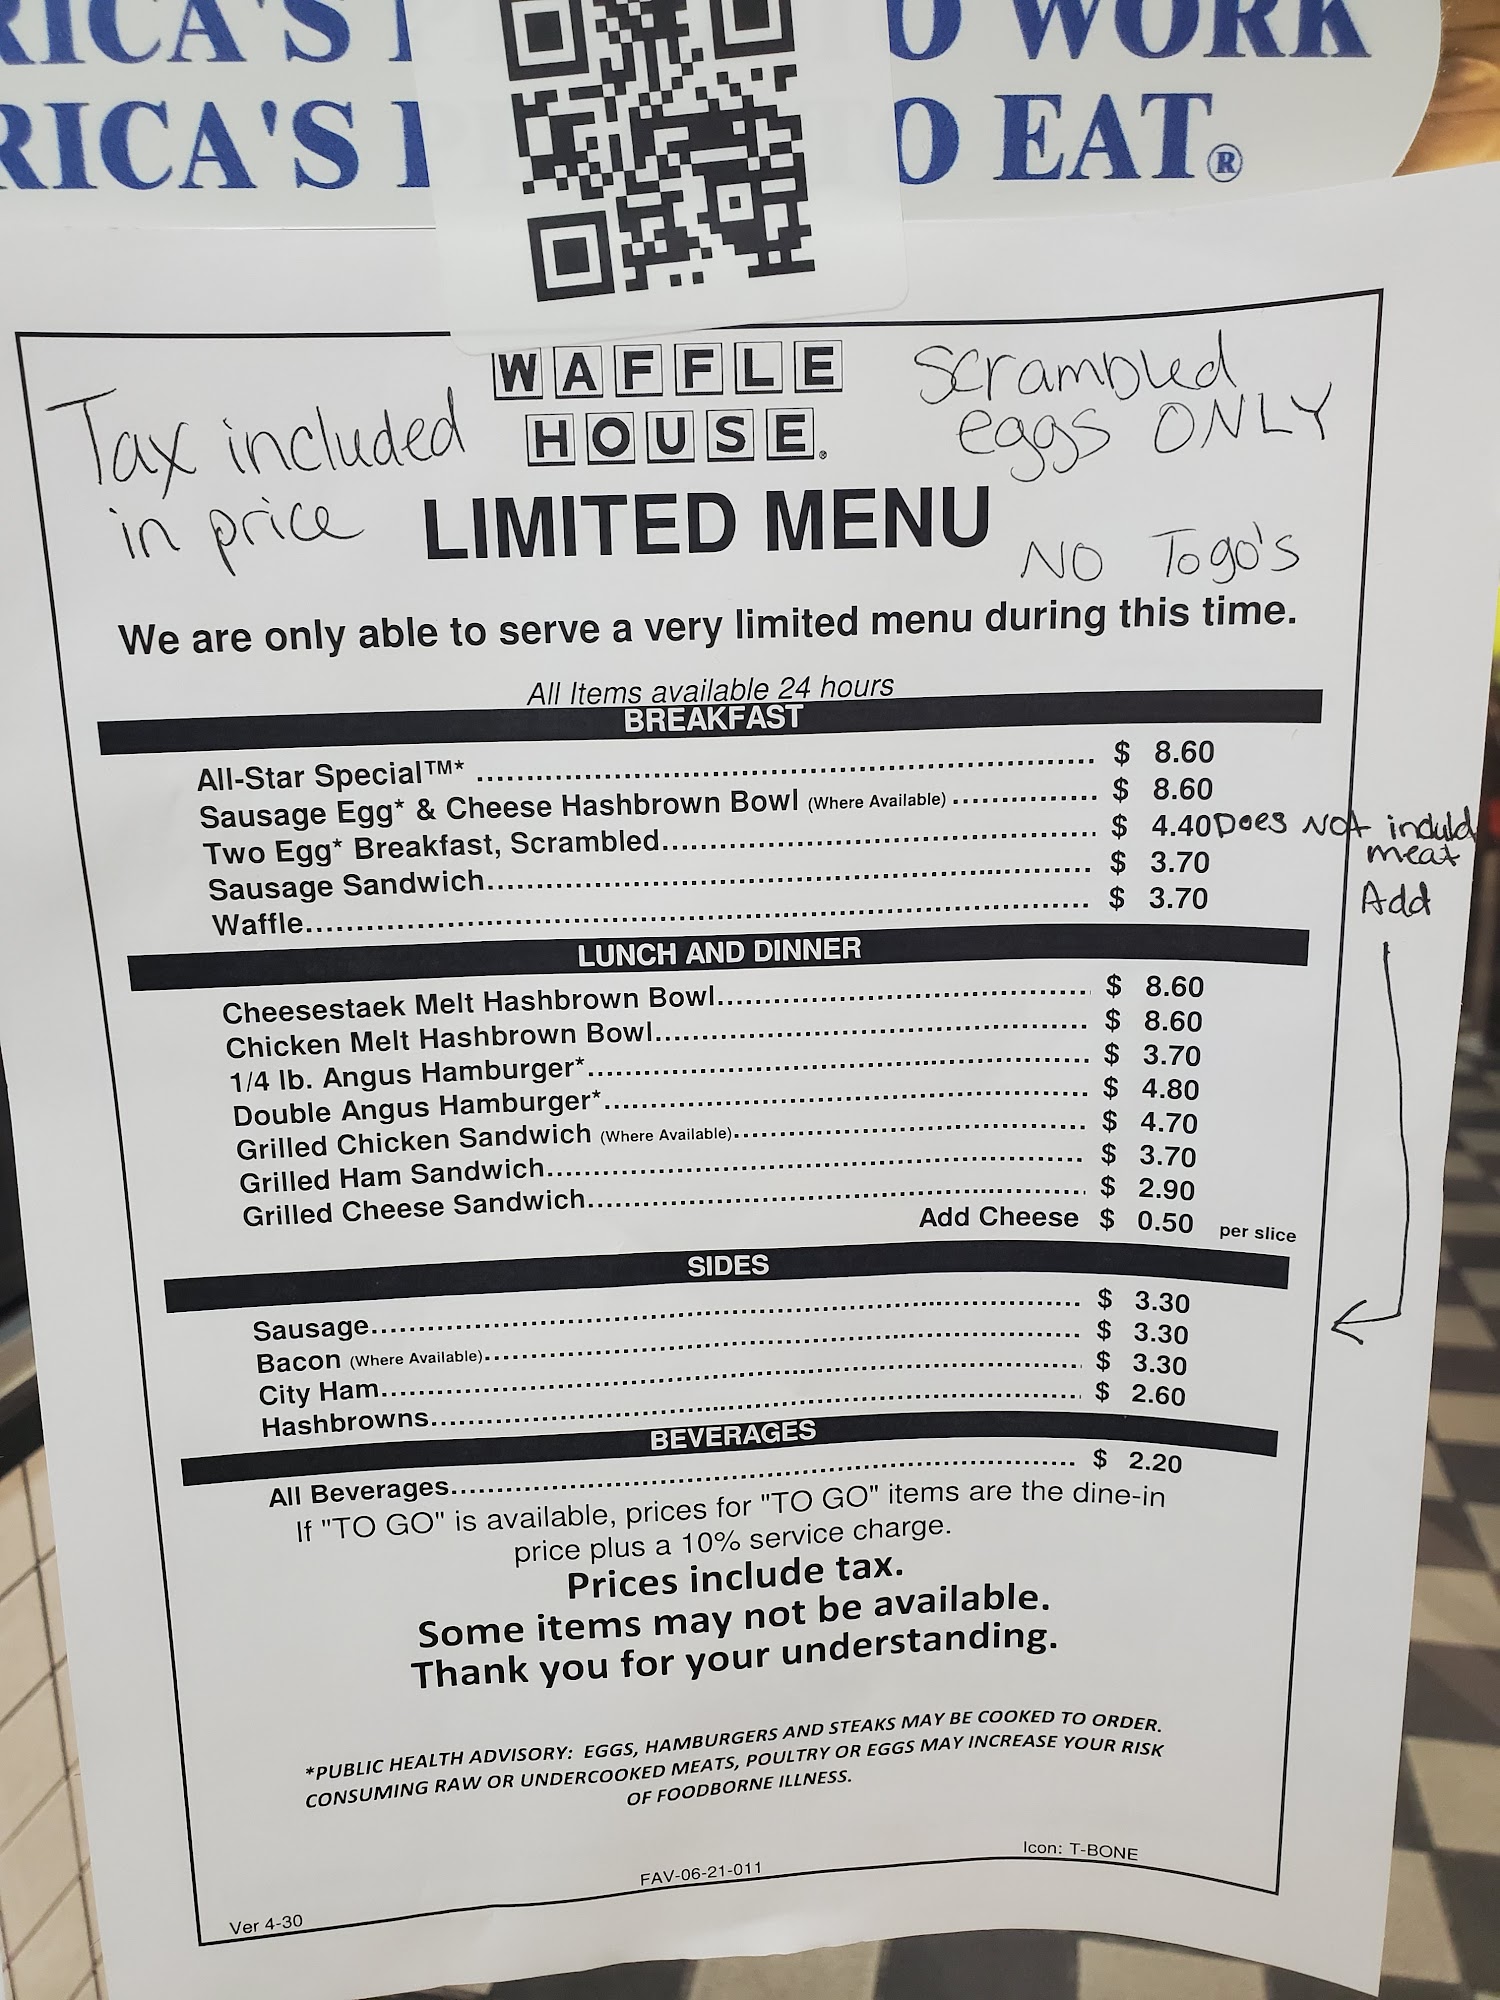 RICA'S
O WORK
RICA'S
O EAT®
WAFFLE
HOUSE®
Tax included
in price
Scrambled
eggs ONLY
LIMITED MENU
NO Togo's
We are only able to serve a very limited menu during this time.
All Items available 24 hours
BREAKFAST
All-Star Special™* $ 8.60
Sausage Egg* & Cheese Hashbrown Bowl (Where Available) $ 8.60
Two Egg* Breakfast, Scrambled $ 4.40 DOES NOT includ
meat
Add
Sausage Sandwich $ 3.70
Waffle $ 3.70
LUNCH AND DINNER
Cheesestaek Melt Hashbrown Bowl $ 8.60
Chicken Melt Hashbrown Bowl $ 8.60
1/4 lb. Angus Hamburger* $ 3.70
Double Angus Hamburger* $ 4.80
Grilled Chicken Sandwich (Where Available) $ 4.70
Grilled Ham Sandwich $ 3.70
Grilled Cheese Sandwich $ 2.90
Add Cheese $ 0.50 per slice
SIDES
Sausage $ 3.30
Bacon (Where Available) $ 3.30
City Ham $ 3.30
Hashbrowns $ 2.60
BEVERAGES
All Beverages $ 2.20
If "TO GO" is available, prices for "TO GO" items are the dine-in
price plus a 10% service charge.
Prices include tax.
Some items may not be available.
Thank you for your understanding.
*PUBLIC HEALTH ADVISORY: EGGS, HAMBURGERS AND STEAKS MAY BE COOKED TO ORDER.
CONSUMING RAW OR UNDERCOOKED MEATS, POULTRY OR EGGS MAY INCREASE YOUR RISK
OF FOODBORNE ILLNESS.
Icon: T-BONE
FAV-06-21-011
Ver 4-30